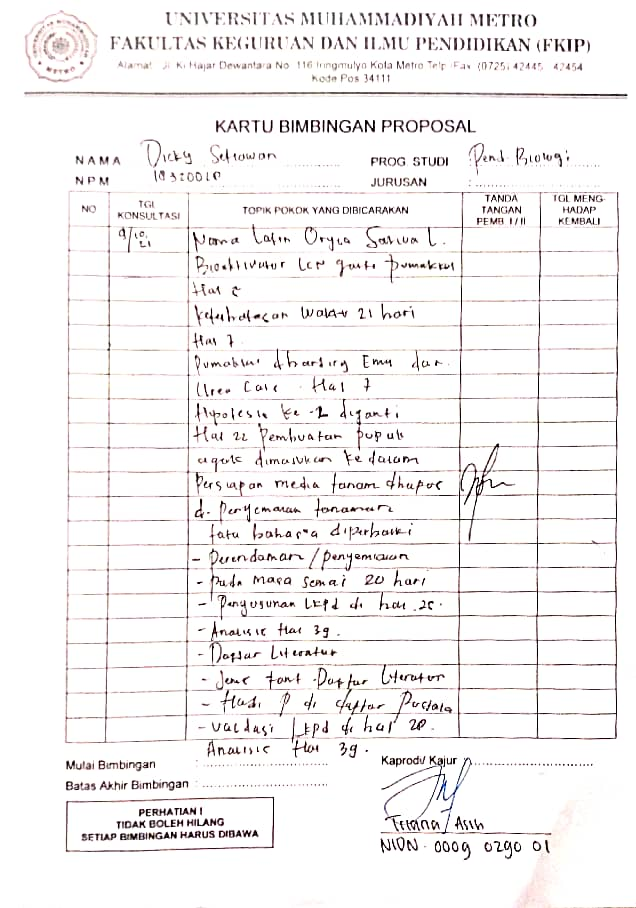 UNIVERSITAS MUHAMMADIYAH METRO
FAKULTAS KEGURUAN DAN ILMU PENDIDIKAN (FKIP)
Alamat : Jl. Ki Hajar Dewantara No. 116 Iringmulyo Kota Metro Telp./Fax. (0725) 42445 - 42454
Kode Pos 34111
KARTU BIMBINGAN PROPOSAL
NAMA Dicky Setiawan PROG STUDI : Pend. Biologi
NPM JURUSAN :
NO TGL KONSULTASI TOPIK POKOK YANG DIBICARAKAN TANDA TANGAN PEMB. I / II TGL MENG-HADAP KEMBALI
9/10.21 Nama Latin Oryza Sativa L.
Bioaktivator
Hal
Keterbatasan Waktu 21 hari
Hal 7.
dan
Urea Hal 7
Hipotesis ke-2 diganti
Hal 22 Pembuatan pupuk
dimasukan ke dalam
Persiapan media tanam dhapus
d. Penyemaian tanaman
tata bahasa diperbaiki
- Perendaman / penyemaian
- Pada masa semai 20 hari
- Penyusunan LKPD di hal.
- Analisis Hal 39.
- Daftar Literatur
- Jenis font Daftar Literatur
- di daftar Pustaka
- Validasi LKPD di hal
Analisis Hal 39.
Mulai Bimbingan :
Kaprodi/ Kajur
Batas Akhir Bimbingan :
PERHATIAN !
TIDAK BOLEH HILANG
SETIAP BIMBINGAN HARUS DIBAWA
Triana Asih
NIDN. 0009 0290 01